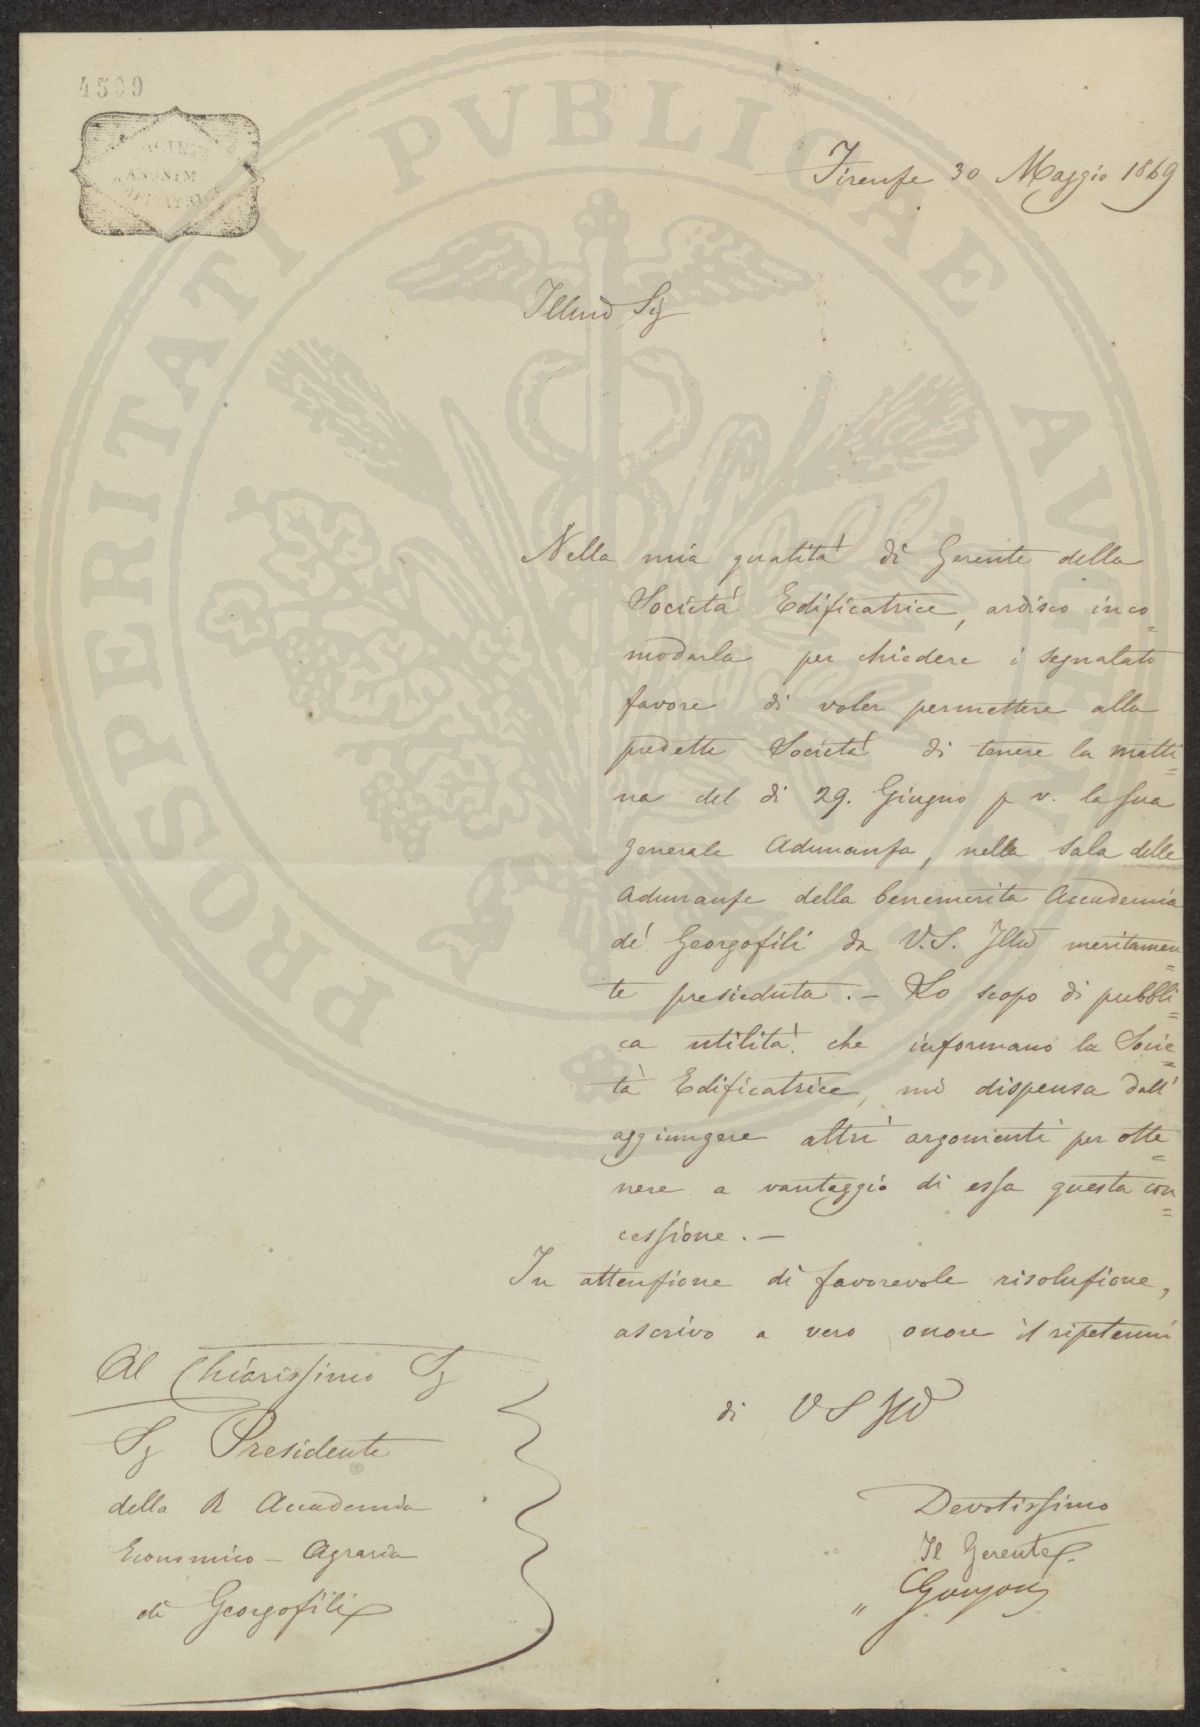 4599
SOCIETÀ
ANONIMA
EDIFICATRICE
PROSPERITATI PVBLICAE AVGENDAE
Firenze 30 Maggio 1869
Illmo Sig
Nella mia qualità di Gerente della
Società Edificatrice, ardisco inco=
modarla per chiedere i segnalato
favore di voler permettere alla
predetta Società di tenere la matti=
na del dì 29. Giugno p v. la sua
generale Adunanza, nella Sala delle
Adunanze della benemerita Accademia
de' Georgofili da V.S. Illma meritamen=
te presieduta. – Lo scopo di pubbli=
ca utilità che informano la Socie=
tà Edificatrice, mi dispensa dall'
aggiungere altri argomenti per otte=
nere a vantaggio di essa questa con=
cessione. –
In attenzione di favorevole risoluzione,
ascrivo a vero onore il ripetermi
di V S Illma
Devotissimo
Il Gerente
Al Chiarissimo Sg
Sg Presidente
della R Accademia
Economico – Agraria
di Georgofili